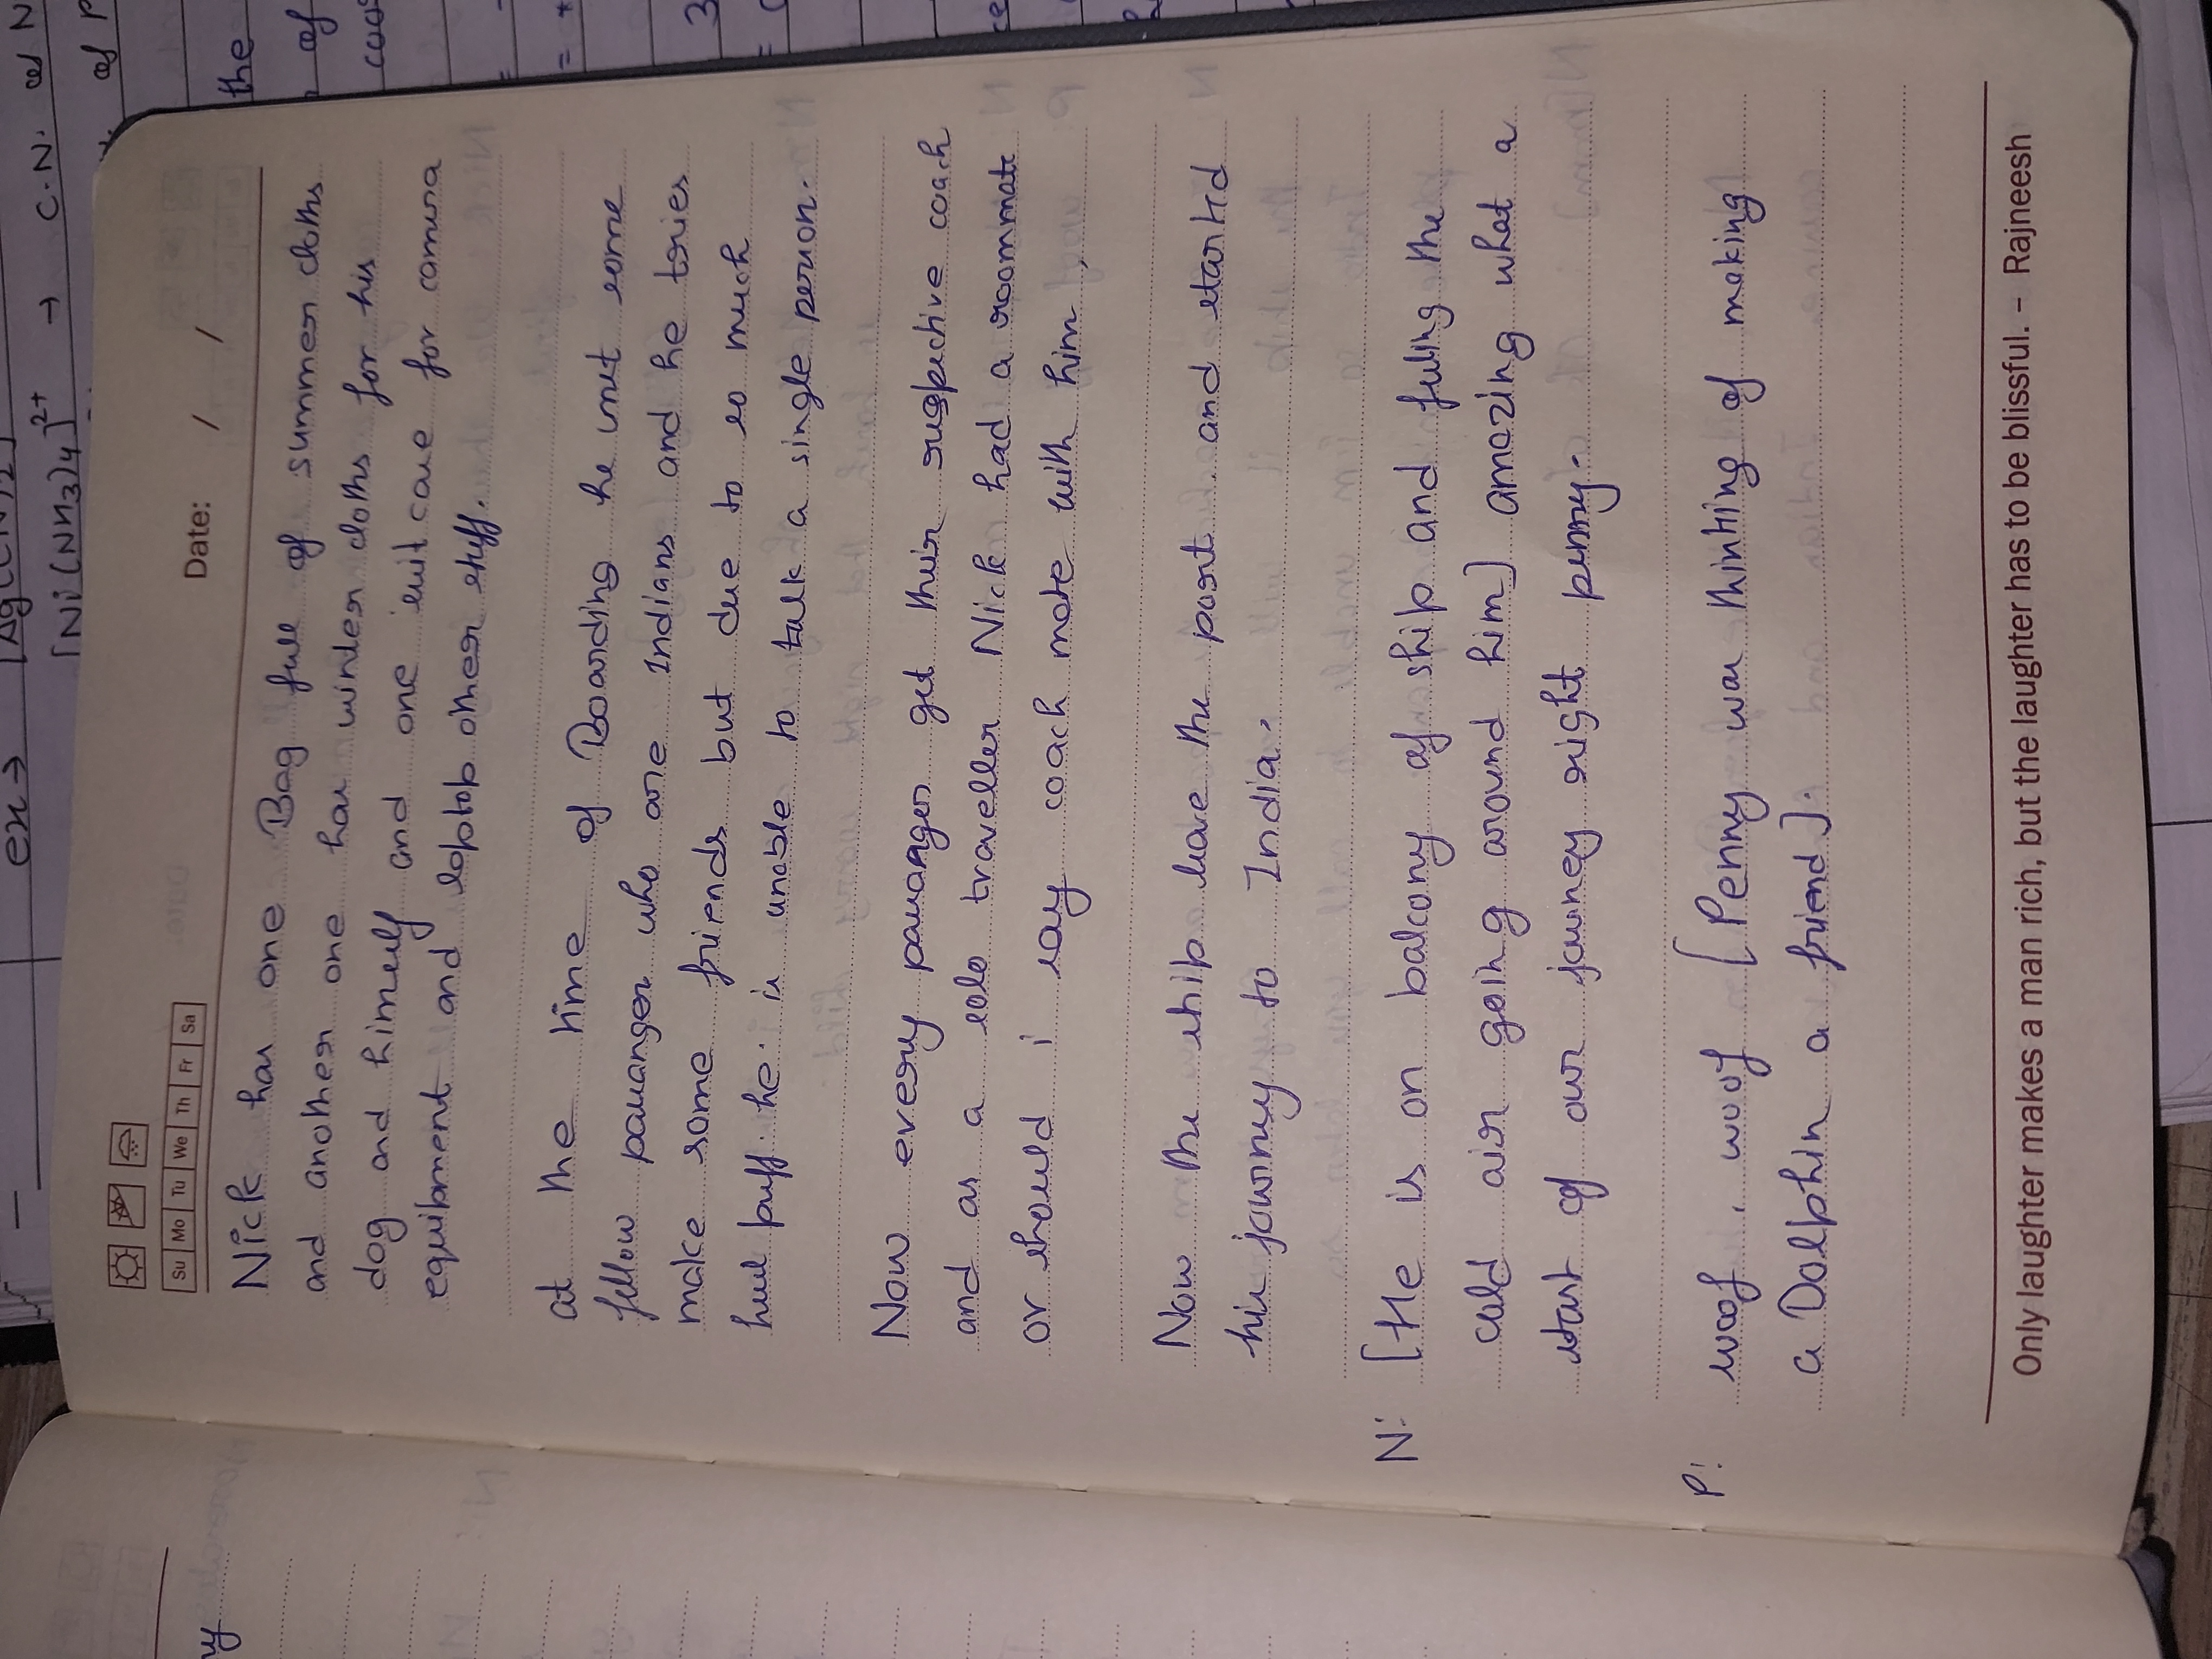 ex →
[Ni(NH3)4]2+ → C.N. of N
of P
Su Mo Tu We Th Fr Sa
Date: / /
Nick has one Bag full of summer cloths
and another one has winter cloths for his
dog and himself and one suit case for camera
equipment and loptop other stuff.
at the time of Boarding he met some
fellow passanger who are Indians and he tries
make some friends but due to so much
huel puff. he is unable to talk a single person.
Now every passanger get their respective coach
and as a solo traveller Nick had a roommate
or should i say coach mate with him,
Now the ship leave the port. and started
his journey to India.
N: [He is on balcony of ship and feeling the
cold air going around him] amazing what a
start of our journey right penny.
P: woof, woof [Penny was thinking of making
a Dolphin a friend].
Only laughter makes a man rich, but the laughter has to be blissful. – Rajneesh
the
of